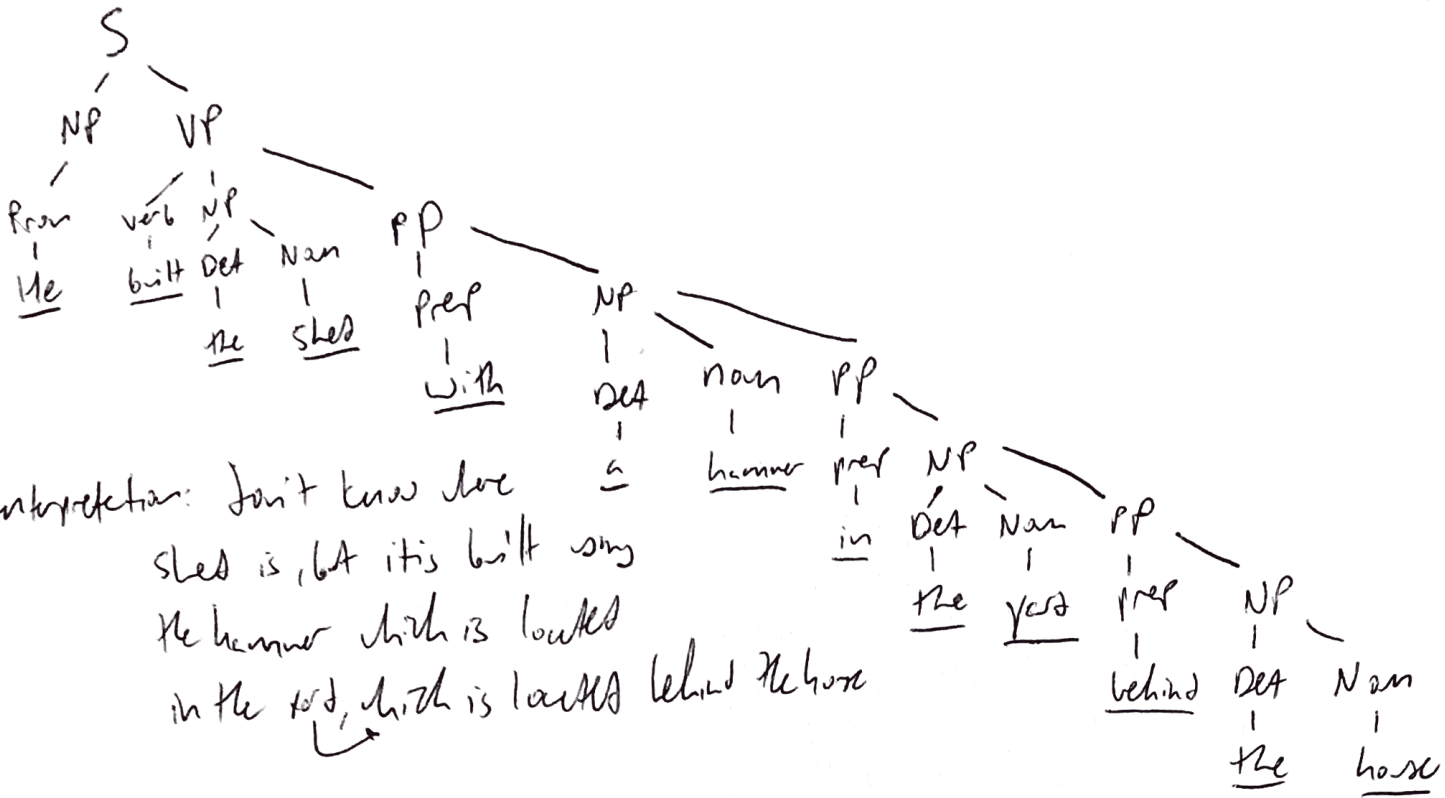 S
NP VP
Pron verb NP PP
He built Det Noun prep NP
the shed with Det noun PP
a hammer prep NP
in Det Noun PP
the yard prep NP
behind Det Noun
the house
Interpretation: don't know where
shed is, but it is built using
the hammer which is located
in the yard, which is located behind the house